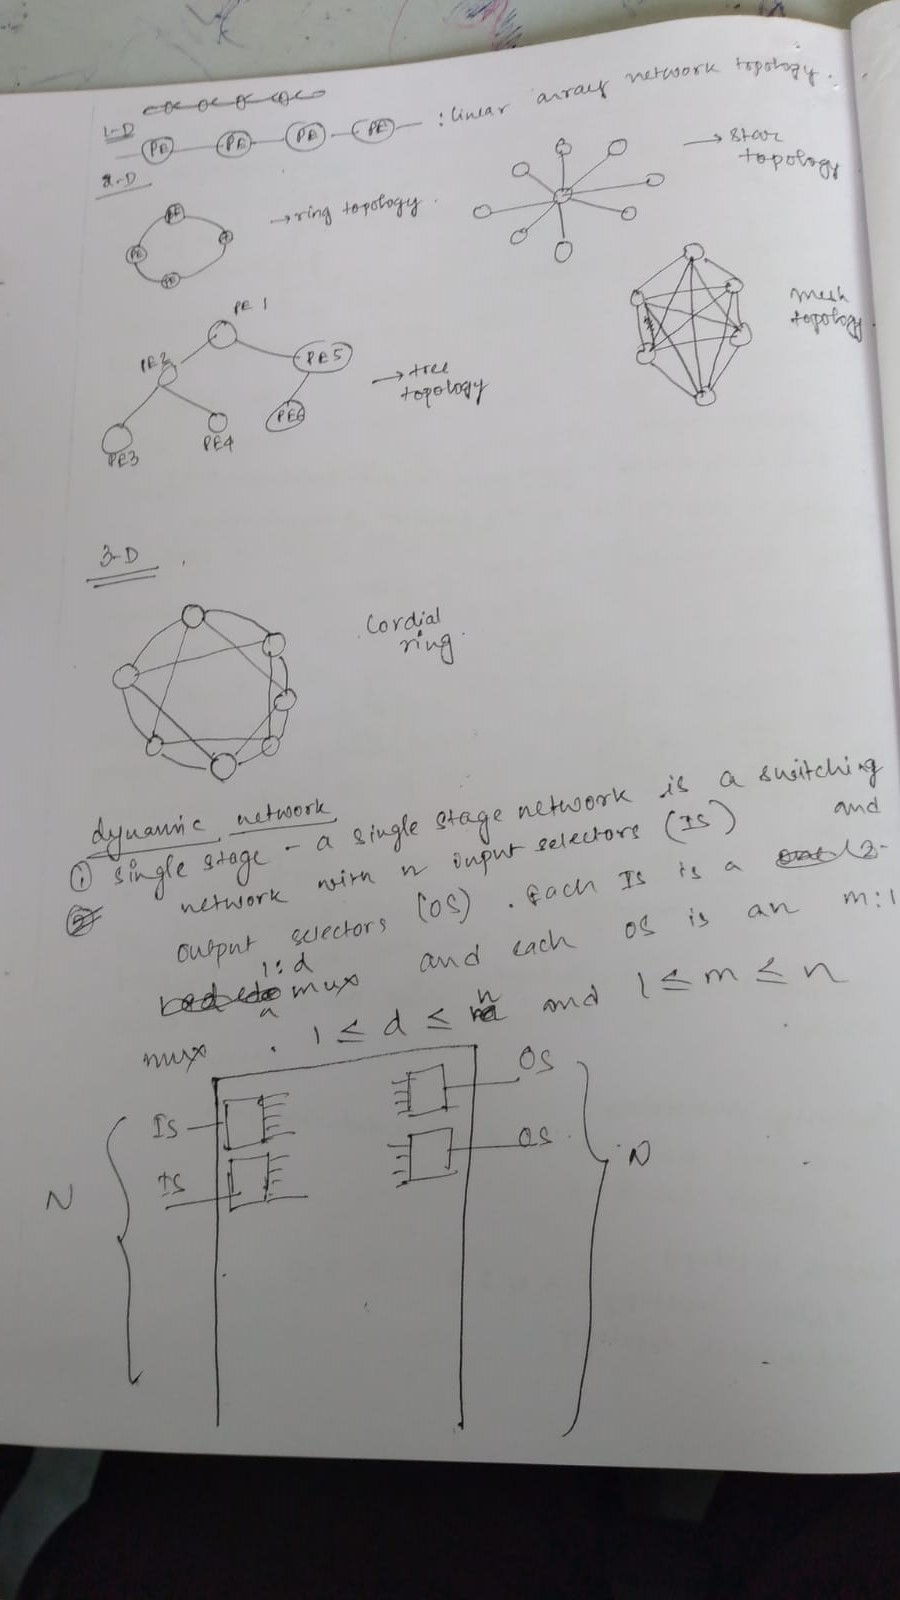 1-D
PE PE PE PE : linear array network topology.
2-D
PE PE PE → ring topology.
→ star topology
mesh topology.
PE 1
PE2 PE5
→ tree topology
PE6
PE3 PE4
3-D
Cordial
ring.
dynamic network
① single stage - a single stage network is a switching
② network with n input selectors (IS) and
output selectors (OS). Each IS is a
1:d
mux and each OS is an m:1
mux. 1 ≤ d ≤ n and 1 ≤ m ≤ n
IS OS
IS OS
N N